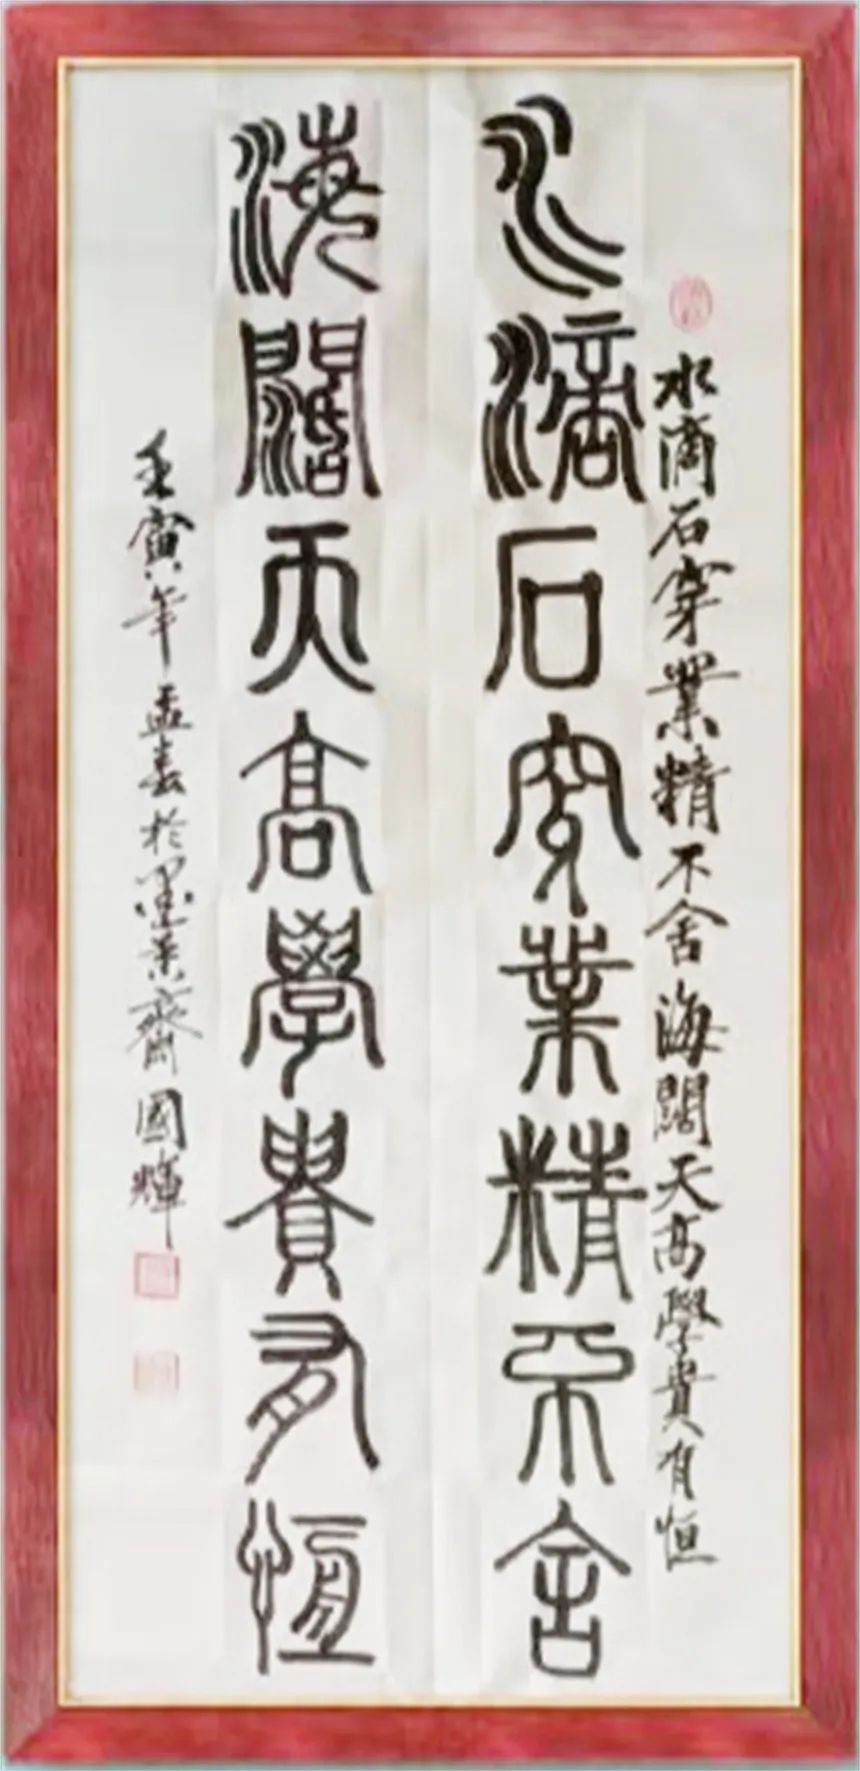 水滴石穿業精不舍海闊天高學貴有恒
水滴石穿業精不舍
海闊天高學貴有恆
壬寅年孟春於墨齋國輝